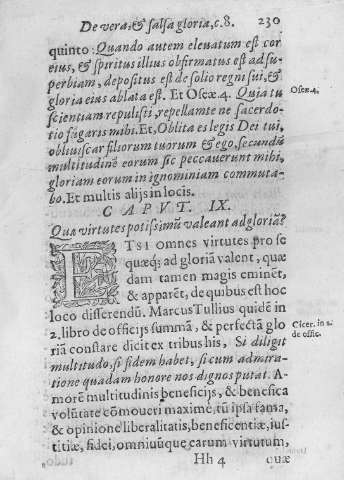 De vera, & falsa gloria, c. 8. 230
quinto: Quando autem eleuatum est cor
eius, & spiritus illius obfirmatus est ad su-
perbiam, depositus est de solio regni sui, &
gloria eius ablata est. Et Oseæ 4. Quia tu
Oseæ 4.
scientiam repulisti, repellam te ne sacerdo-
tio fugaris mihi. Et, Oblita es legis Dei tui,
obliuiscar filiorum tuorum & ego, secundũ
multitudinē eorum sic peccauerunt mihi,
gloriam eorum in ignominiam commuta-
bo. Et multis alijs in locis.
CAPVT. IX.
Quæ virtutes potissimũ valeant ad gloriã?
ETSI omnes virtutes pro se
quæq; ad gloria valent, quæ
dam tamen magis eminēt,
& apparēt, de quibus est hoc
loco differendũ. Marcus Tullius quidē in
2. libro de officijs summã, & perfectã glo
Cicer. in 2.
riã constare dicit ex tribus his, Si diligit
de offic.
multitudo, si fidem habet, si cum admira-
tione quadam honore nos dignos putat. A-
morē multitudinis beneficijs, & benefica
volũtate cõmoueri maxime, tũ ipsa fama,
& opinione liberalitatis, beneficentiæ, ius-
titiæ, fidei, omniuũque earum virtutum,
Hh 4 quæ